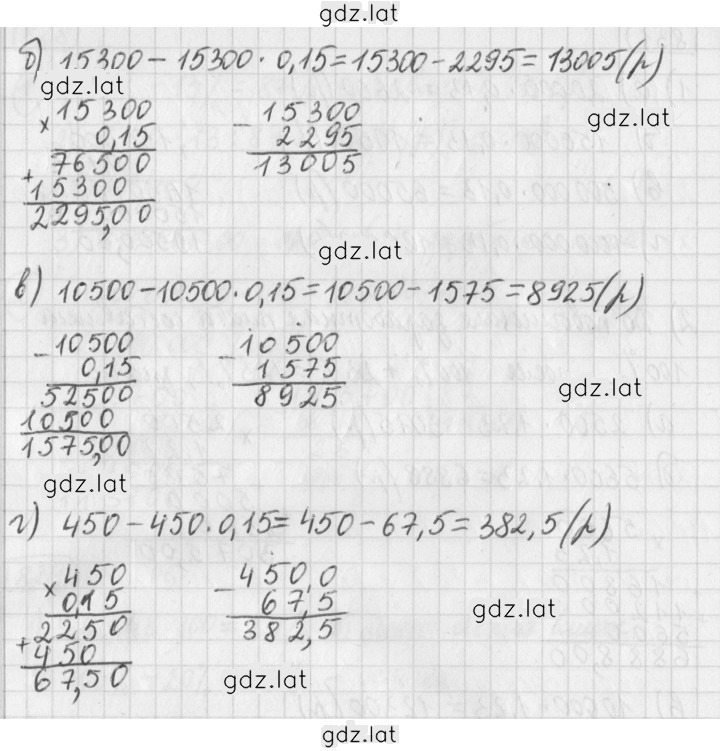 gdz.lat
б) 15300 - 15300 · 0,15 = 15300 - 2295 = 13005 (р)
gdz.lat
× 15300
0,15
76500
+ 15300
2295,00
- 15300
2295
13005
gdz.lat
gdz.lat
в) 10500 - 10500 · 0,15 = 10500 - 1575 = 8925 (р)
- 10500
0,15
52500
10500
1575,00
- 10500
1575
8925
gdz.lat
gdz.lat
г) 450 - 450 · 0,15 = 450 - 67,5 = 382,5 (р)
× 450
0,15
2250
+ 450
67,50
- 450,0
67,5
382,5
gdz.lat
gdz.lat
gdz.lat